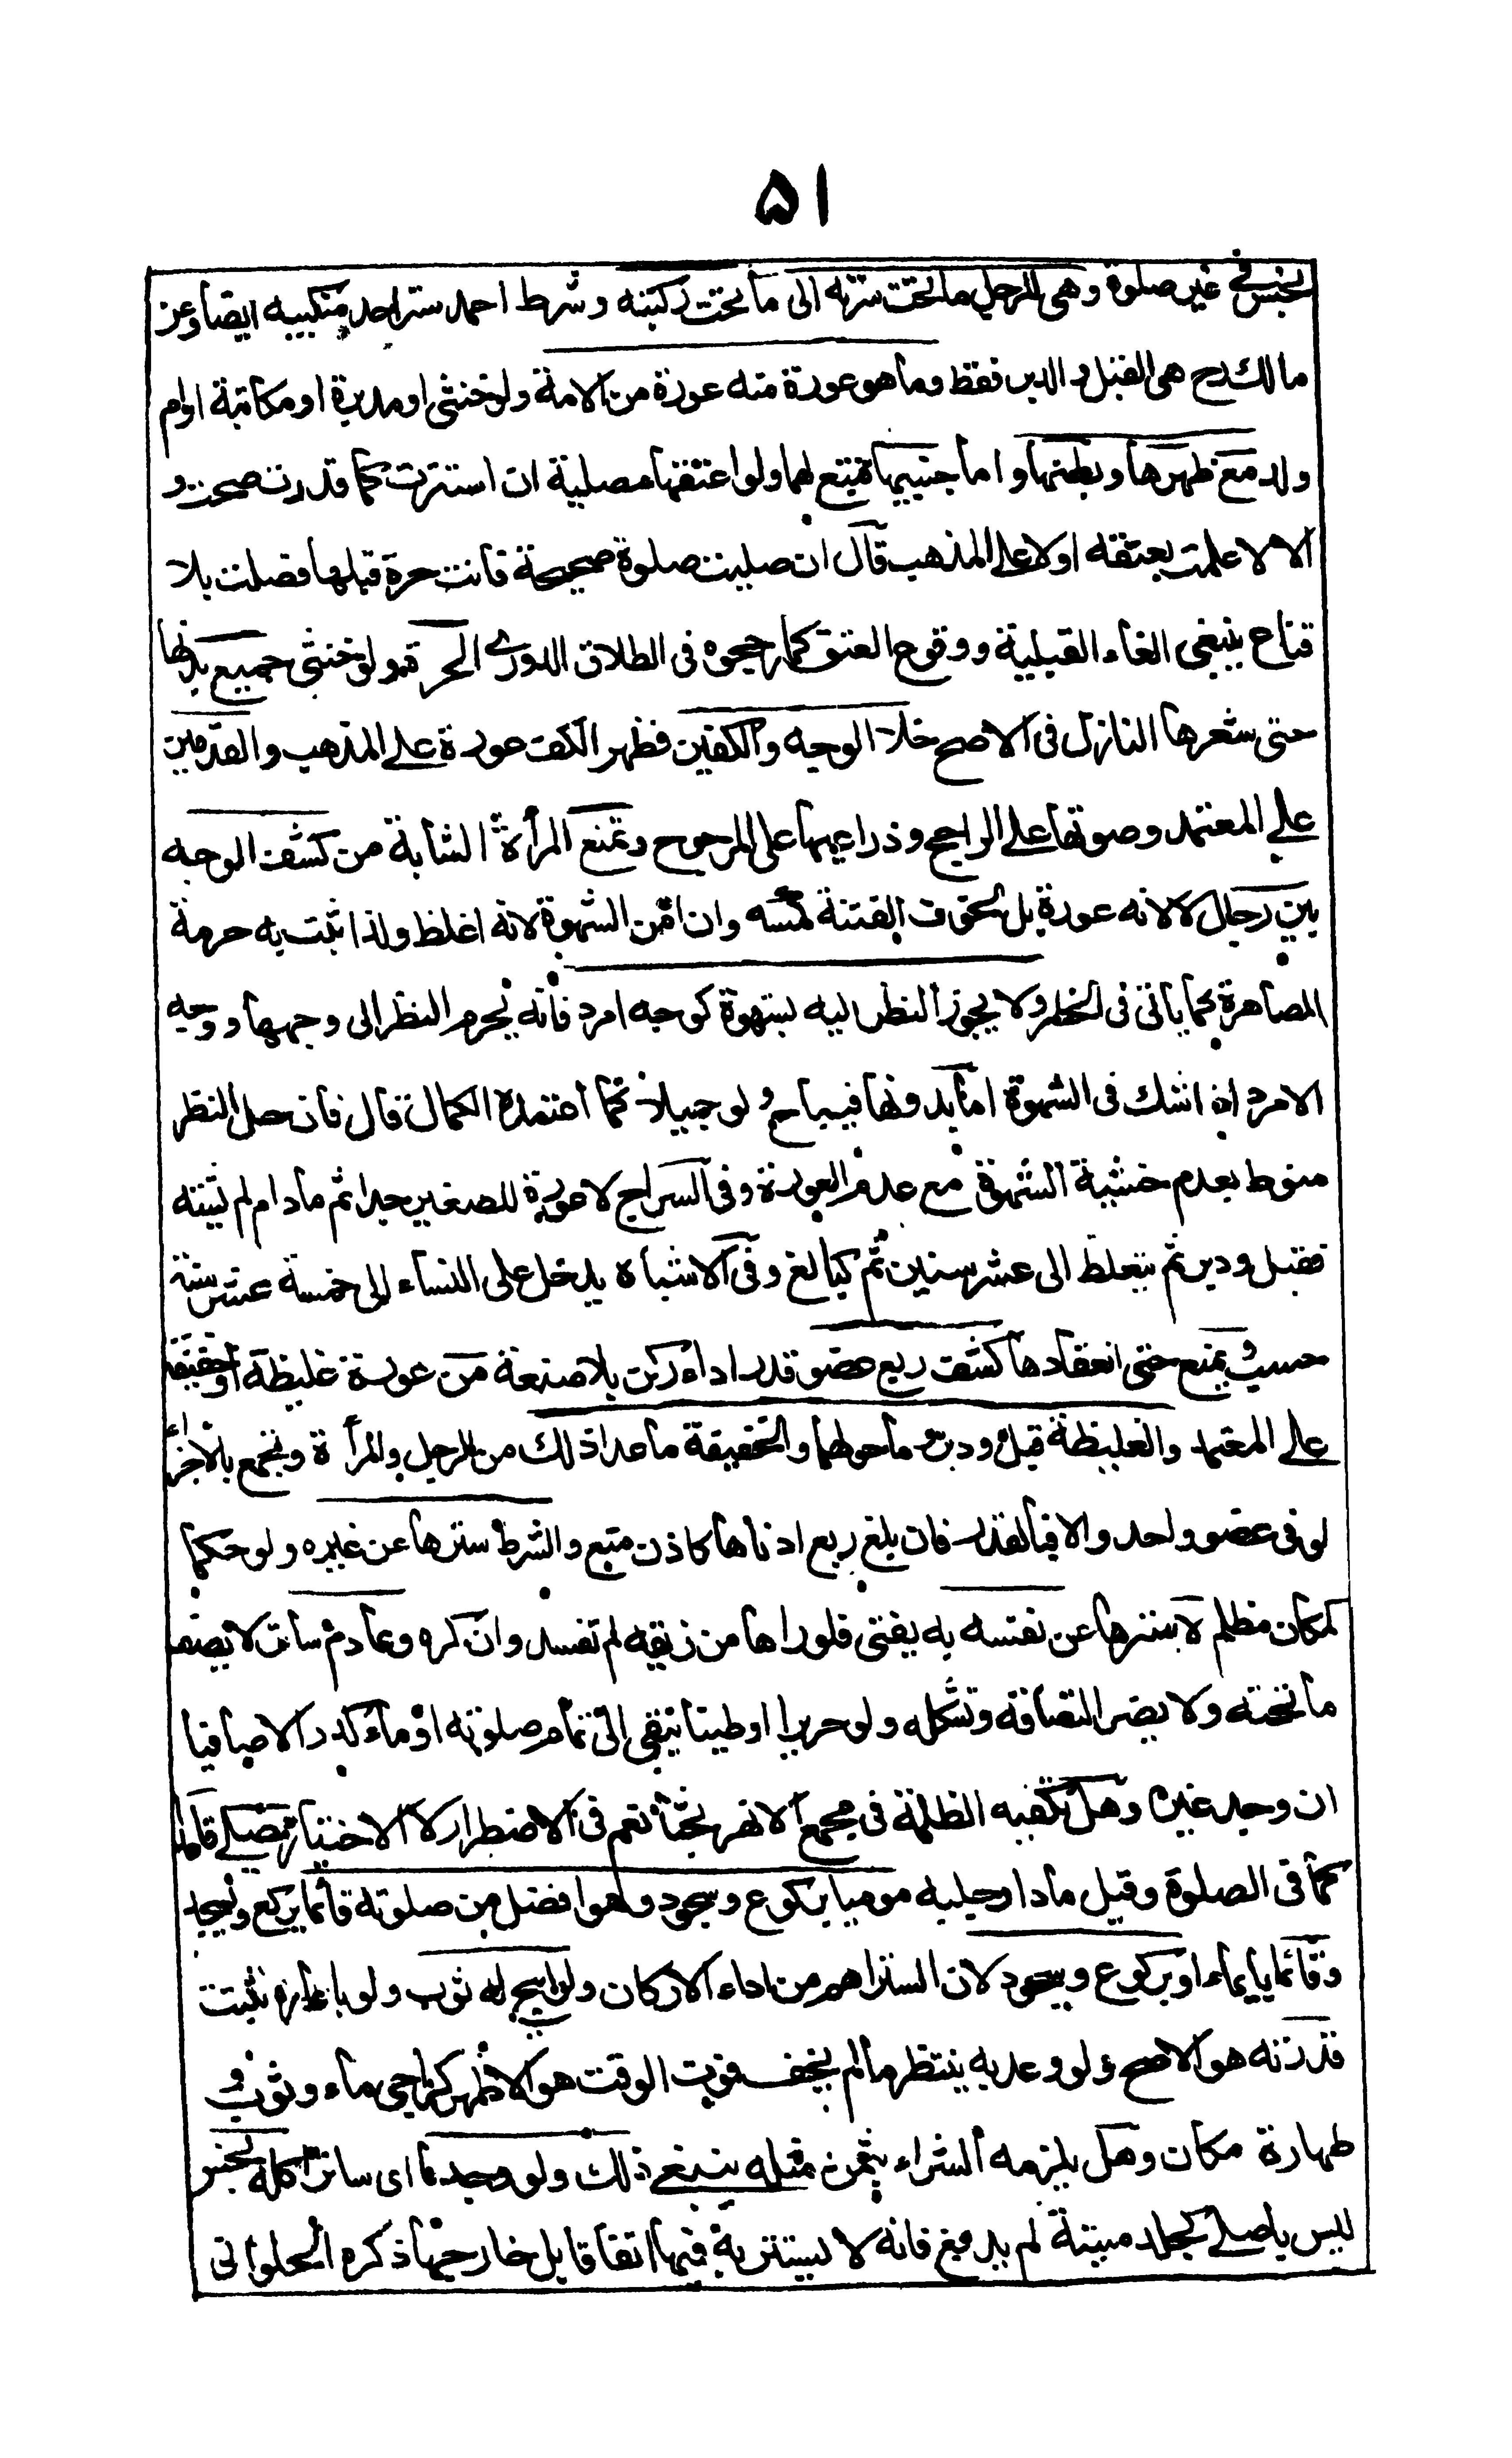 ٥١
نجس فى غير صلوة وهى للرجل ما تحت سرته الى ما تحت ركبته وشرط احمد ستر احد منكبيه ايضا وعن
مالك رح هى القبل والدبر فقط وما هو عورة منه عورة من الامة ولو خنثى او مدبرة او مكاتبة او ام
ولد مع ظهرها وبطنها واما جنبيها فتبع لهما ولو اعتقها مصلية ان استترت كما قدرت صحت و
الا لا علمت بعتقه اولا على المذهب قال ان صليت صلوة صحيحة فانت حرة قبلها فصلت بلا
قناع ينبغى الغاء القبلية ووقوع العتق كما رجحوه فى الطلاق الدورى الحرة ولو خنثى جميع بدنها
حتى شعرها النازل فى الاصح خلا الوجه والكفين فظهر الكف عورة على المذهب والقدمين
على المعتمد وصوتها على الراجح وذراعيها على المرجوح وتمنع المرأة الشابة من كشف الوجه
بين رجال لا لانه عورة بل لخوف الفتنة كمسه وان امن الشهوة لانه اغلظ ولذا ثبت به حرمة
المصاهرة كما ياتى فى الحظر ولا يجوز النظر اليه بشهوة كوجه امرد فانه يحرم النظر الى وجهها ووجه
الامرد اذا شك فى الشهوة اما بدونها فيباح ولو جميلا كما اعتمده الكمال قال فان حل النظر
منوط بعدم خشية الشهوة مع عدم العورة وفى السراج لا عورة للصغير جدا ثم ما دام لم يشته
فقبل ودبر ثم تتغلظ الى عشر سنين ثم كبالغ وفى الاشباه يدخل على النساء الى خمسة عشر سنة
حسب ويمنع حتى انعقادها كشف ربع عضو قدر اداء ركن بلا صنعة من عورة غليظة او خفيفة
على المعتمد والغليظة قبل ودبر وما حولهما والخفيفة ما عدا ذلك من الرجل والمرأة وتجمع بالاجزاء
لو فى عضو واحد والا فبالقدر فان بلغ ربع ادناها كاذن منع والشرط سترها عن غيره ولو حكما
كمكان مظلم لا سترها عن نفسه به يفتى فلو راها من زيقه لم تفسد وان كره وعادم ساتر لا يصف
ما تحته ولا يضر التصاقه وتشكله ولو حريرا او طينا يبقى الى تمام صلوته او ماء كدرا لا صافيا
ان وجد غيره وهل تكفيه الظلمة فى مجمع الانهر بحثا نعم فى الاضطرار لا الاختيار يصلى قاعدا
كما فى الصلوة وقيل مادا رجليه موميا بركوع وسجود وهو افضل من صلوته قائما يركع ويسجد
وقائما بايماء او بركوع وسجود لان الستر اهم من اداء الاركان ولو ابيح له ثوب ولو باعارة ثبتت
قدرته هو الاصح ولو وعد به ينتظر ما لم يخف فوت الوقت هو الاظهر كراجى ماء وثوب و
طهارة مكان وهل يلزمه الشراء بثمن مثله ينبغى ذلك ولو وجد ما اى ساترا كله نجس
ليس باصلى كجلد ميتة لم يدبغ فانه لا يستتر به فيها اتفاقا بل خارجها ذكره الحلوانى